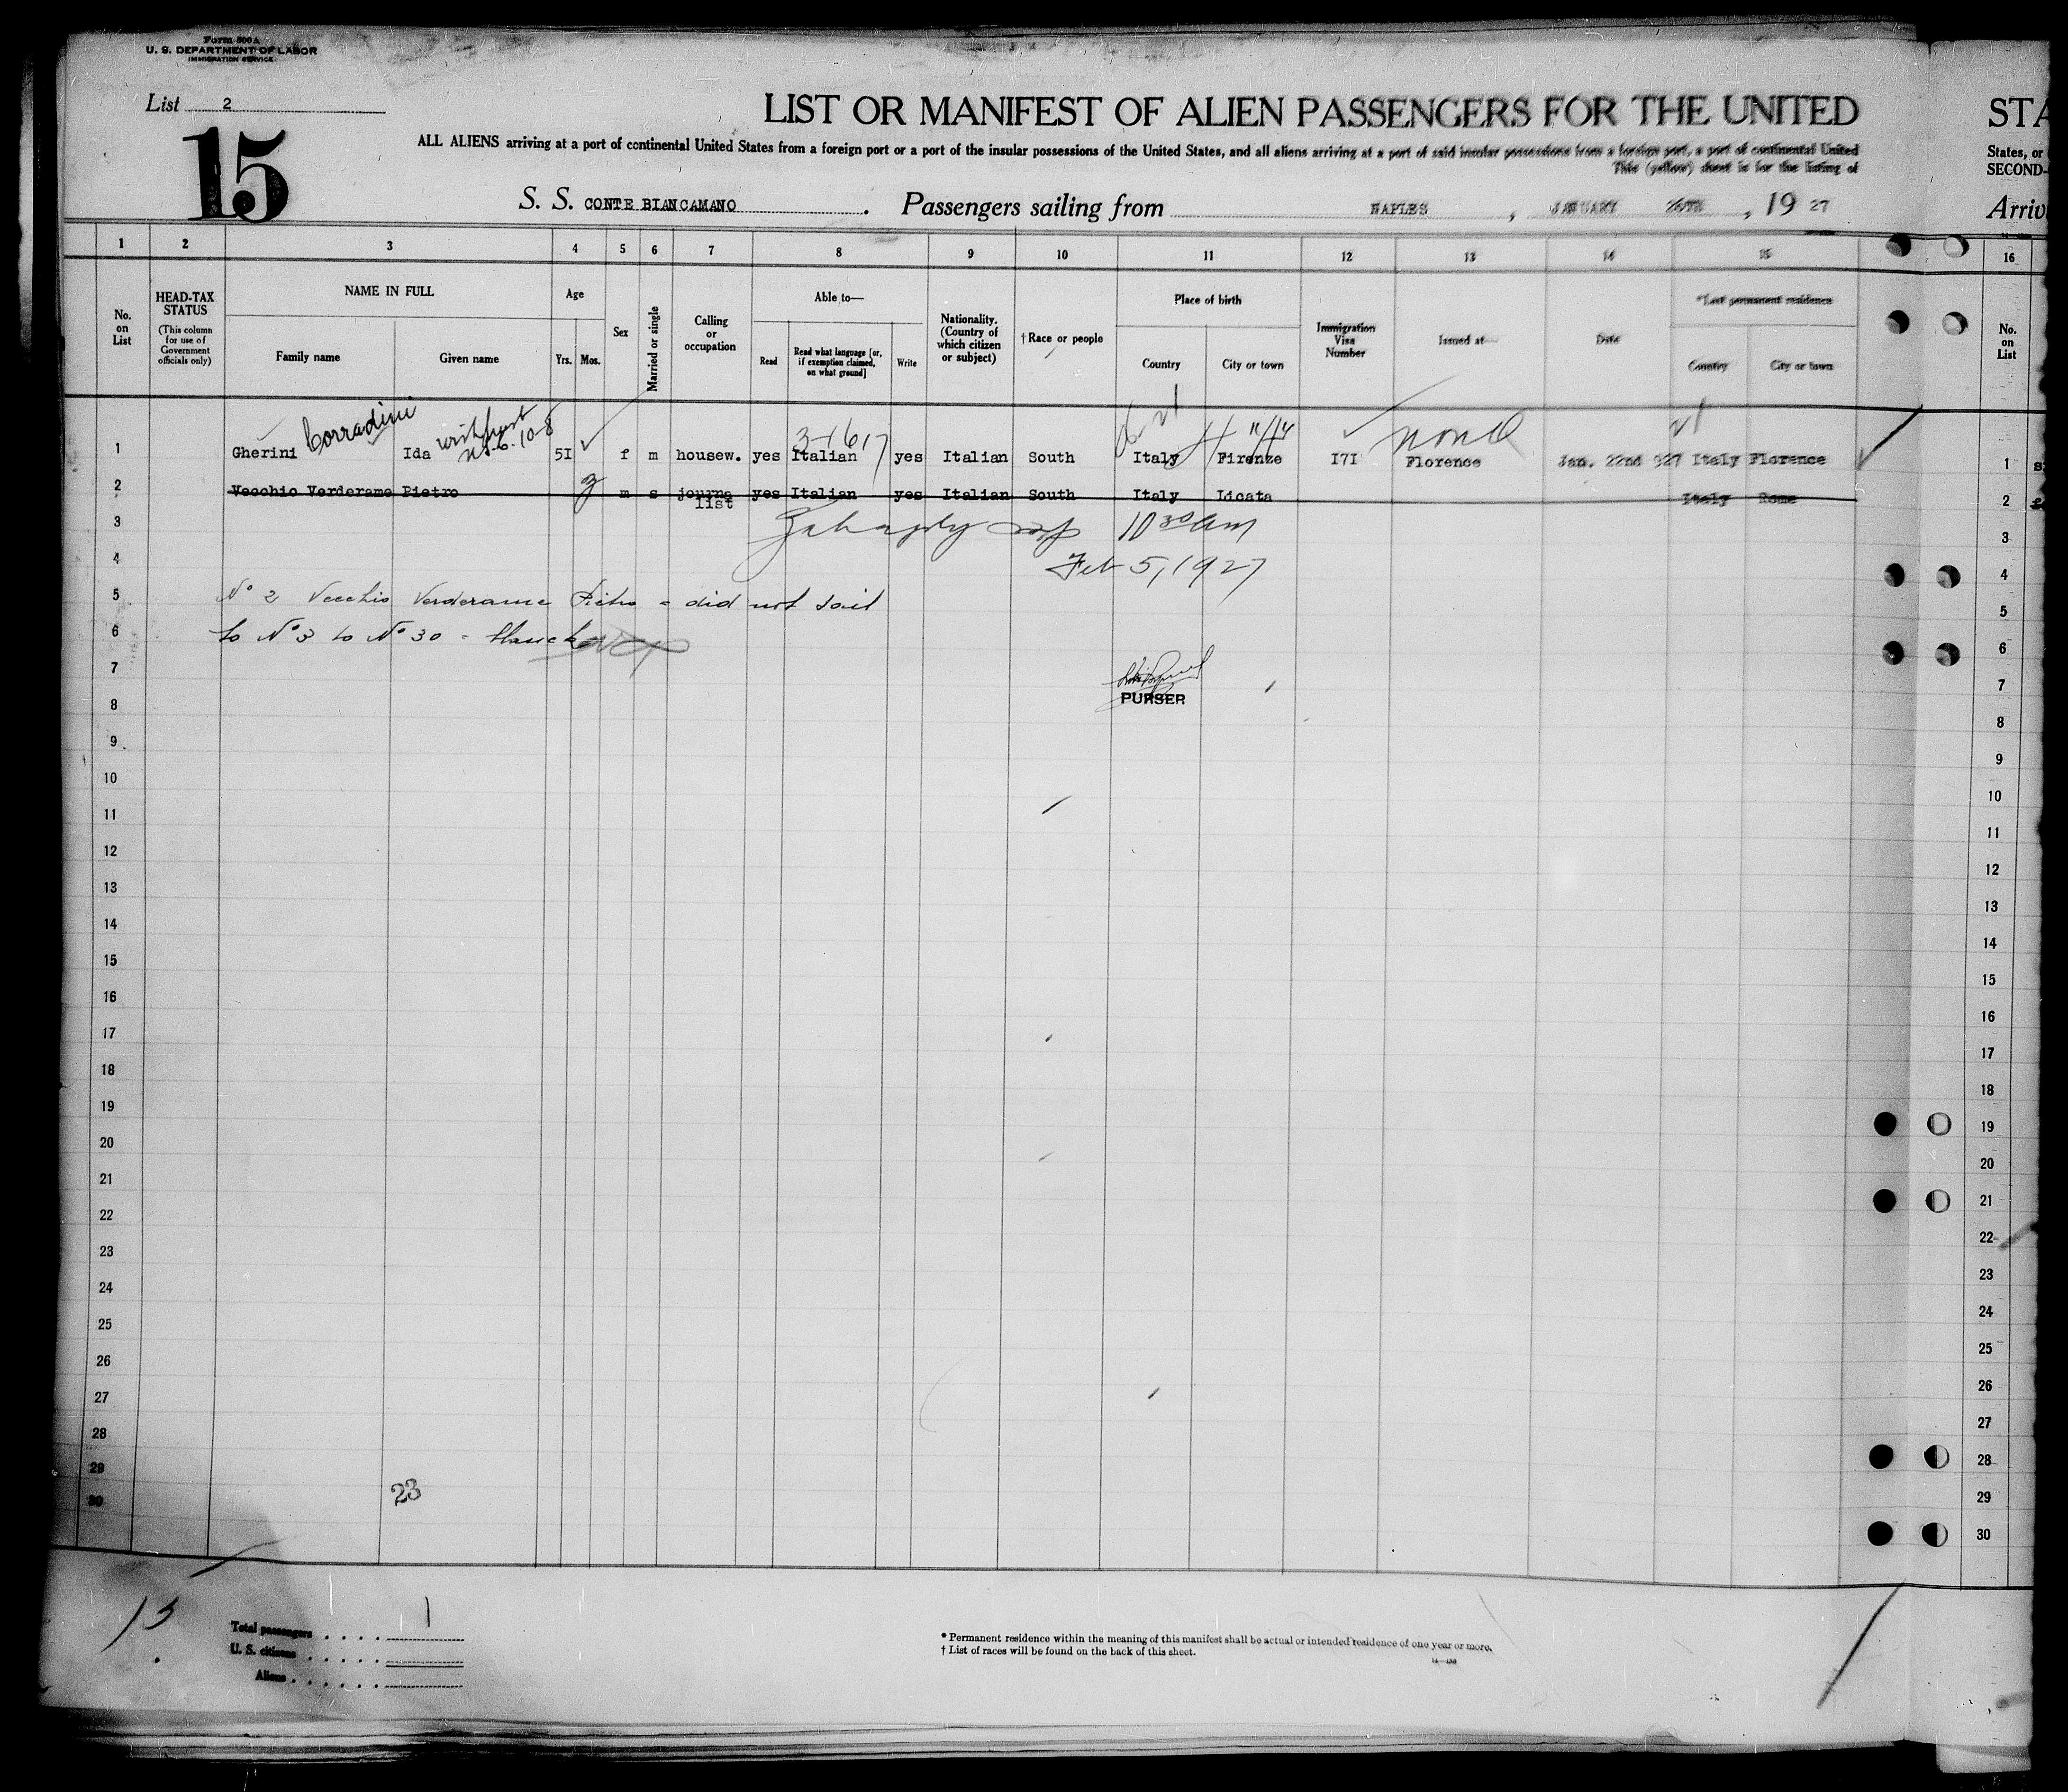 Form 500A
U. S. DEPARTMENT OF LABOR
IMMIGRATION SERVICE
List 2
15
LIST OR MANIFEST OF ALIEN PASSENGERS FOR THE UNITED
ALL ALIENS arriving at a port of continental United States from a foreign port or a port of the insular possessions of the United States, and all aliens arriving at a port of said insular possessions from a foreign port, a port of continental United
This (yellow) sheet is for the listing of
S. S. CONTE BIANCAMANO. Passengers sailing from NAPLES, JANUARY 26TH, 19 27
STA
States, or
SECOND-
Arriv
1 2 3 4 5 6 7 8 9 10 11 12 13 14 15 16
No. on List
HEAD-TAX STATUS
(This column for use of Government officials only)
NAME IN FULL
Family name Given name
Age
Yrs. Mos.
Sex
Married or single
Calling or occupation
Able to—
Read
Read what language [or, if exemption claimed, on what ground]
Write
Nationality. (Country of which citizen or subject)
† Race or people
Place of birth
Country City or town
Immigration Visa Number
Issued at—
Date
*Last permanent residence
Country City or town
No. on List
Corradini
3-1617
none
1 Gherini Ida 51 f m housew. yes Italian yes Italian South Italy Firenze 171 Florence Jan. 22nd 927 Italy Florence 1
2 Vecchio Verderame Pietro m s journalist yes Italian yes Italian South Italy Licata Italy Rome 2
10 30 am
Feb 5, 1927
N° 2 Vecchio Verderame Pietro = did not sail
to N° 3 to N° 30 =
PURSER
3 3
4 4
5 5
6 6
7 7
8 8
9 9
10 10
11 11
12 12
13 13
14 14
15 15
16 16
17 17
18 18
19 19
20 20
21 21
22 22
23 23
24 24
25 25
26 26
27 27
28 28
29 29
30 30
23
Total passengers . . . . 1
U. S. citizens . . . . .
Aliens . . . . . .
* Permanent residence within the meaning of this manifest shall be actual or intended residence of one year or more.
† List of races will be found on the back of this sheet.